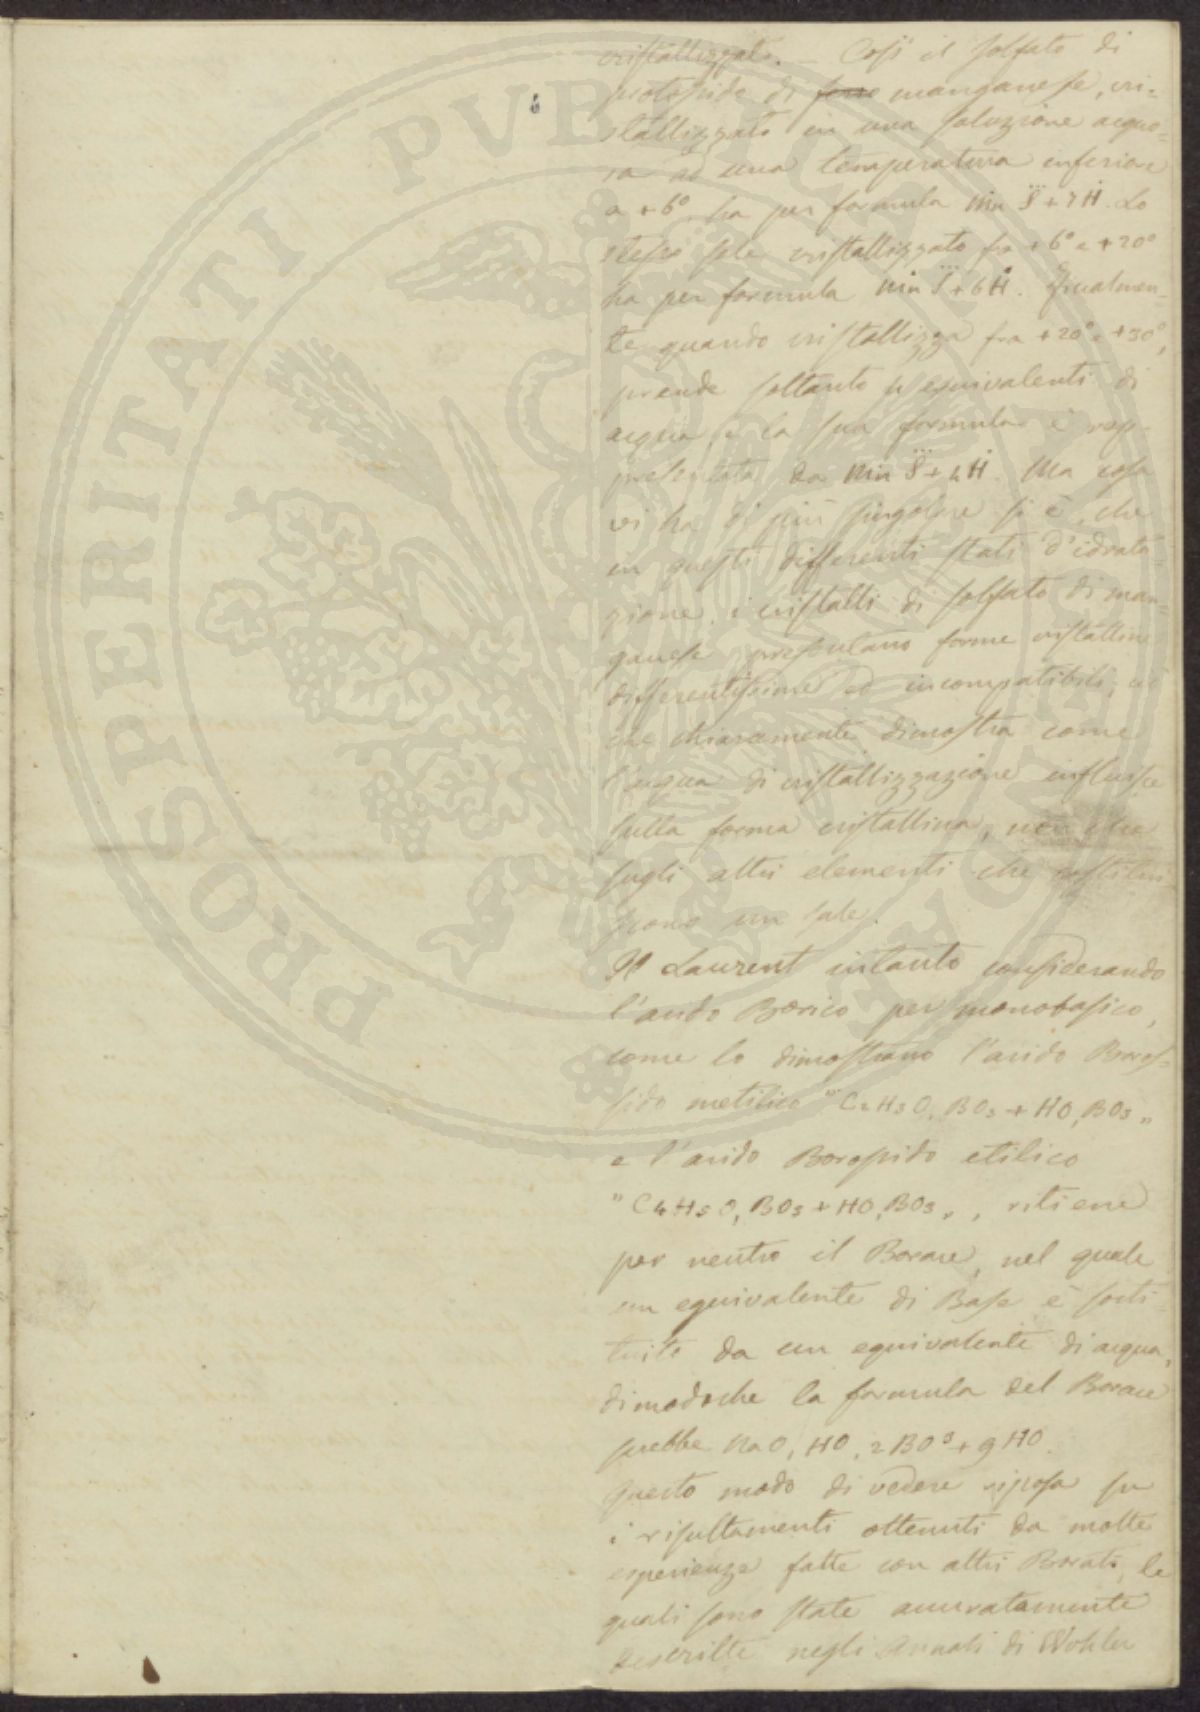 cristallizzato. – Così il solfato di
protossido di ferro manganese, cri-
stallizzato in una soluzione acquo-
sa ad una temperatura inferiore
a +6°, ha per formula Mn S + 7 H. Lo
stesso sale cristallizzato fra +6° e +20°
ha per formula Mn S + 6 H. Finalmen-
te quando cristallizza fra +20° e +30°,
prende soltanto 4 equivalenti di
acqua e la sua formula è rap-
presentata da Mn S + 4 H. Ma cosa
vi ha di più singolare si è, che
in questi differenti stati d'idrata-
zione, i cristalli di solfato di man-
ganese presentano forme cristalline
differentissime ed incompatibili; ciò
che chiaramente dimostra come
l'acqua di cristallizzazione influisce
sulla forma cristallina, non che
sugli altri elementi che costitui-
scono un sale.
Il Laurent intanto considerando
l'acido Borico per monobasico,
come lo dimostrano l'acido Boros-
sido metilico "C2H3O, BO3 + HO, BO3„
e l'acido Borossido etilico
"C4H5O, BO3 + HO, BO3„, ritiene
per neutro il Borace, nel quale
un equivalente di Base è sosti-
tuito da un equivalente di acqua,
dimodoche la formula del Borace
sarebbe NaO, HO, 2BO3 + 9HO.
Questo modo di vedere riposa su
i risultamenti ottenuti da molte
esperienze fatte con altri Borati, le
quali sono state accuratamente
descritte negli Annali di Wohler
PROSPERITATI PVBLICAE